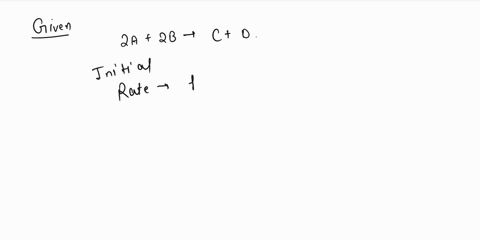 Given
2A + 2B → C + D.
Initial
Rate → 1